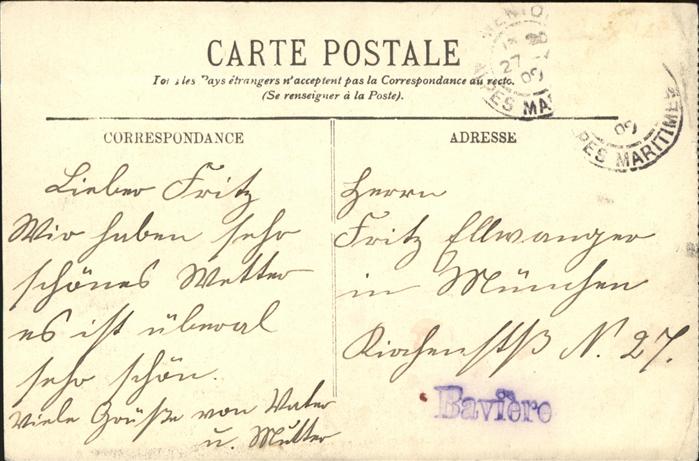 CARTE POSTALE
Tous les Pays étrangers n'acceptent pas la Correspondance au recto.
(Se renseigner à la Poste).
CORRESPONDANCE
Lieber Fritz
Wir haben sehr
schönes Wetter
es ist überal
sehr schön.
Viele Grüße von Vater
u. Mutter
ADRESSE
Herrn
Fritz Ellwanger
in München
Kirchenstß N. 27.
Bavière
27
09
ALPES MA
09
PES MARITIMES